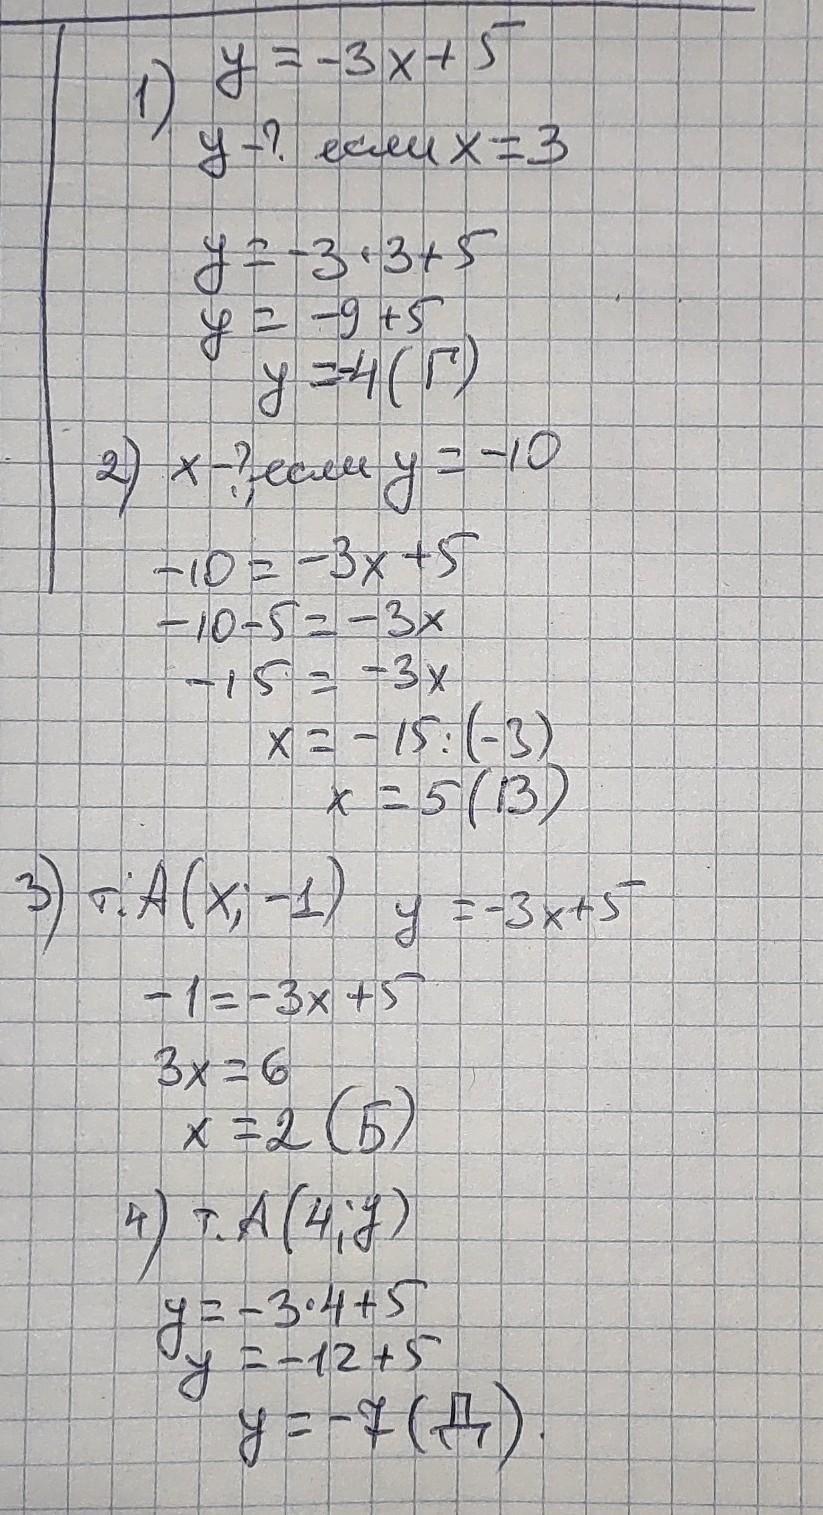 1) y = -3x + 5
y - ? если x = 3
y = -3 · 3 + 5
y = -9 + 5
y = -4 (Г)
2) x - ?, если y = -10
-10 = -3x + 5
-10 - 5 = -3x
-15 = -3x
x = -15 : (-3)
x = 5 (В)
3) т. A(x; -1) y = -3x + 5
-1 = -3x + 5
3x = 6
x = 2 (Б)
4) т. A(4; y)
y = -3 · 4 + 5
y = -12 + 5
y = -7 (Д).